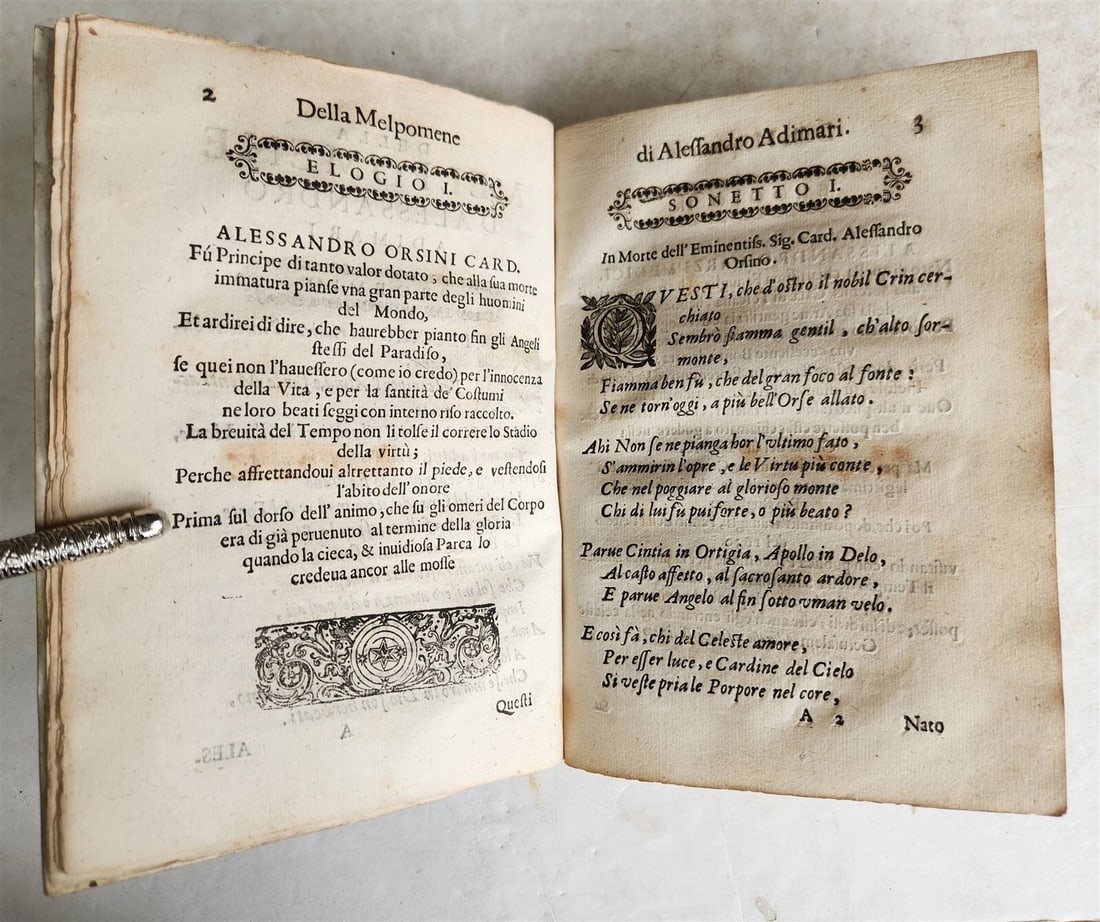 2
Della Melpomene
ELOGIO I.
ALESSANDRO ORSINI CARD.
Fú Principe di tanto valor dotato, che alla sua morte
immatura pianſe vna gran parte degli huomini
del Mondo,
Et ardirei di dire, che haurebber pianto fin gli Angeli
ſteſſi del Paradiſo,
ſe quei non l'haueſſero (come io credo) per l'innocenza
della Vita, e per la ſantità de' Coſtumi
ne loro beati ſeggi con interno riſo raccolto.
La breuità del Tempo non li tolſe il correre lo Stadio
della virtù;
Perche affrettandoui altrettanto il piede, e veſtendoſi
l'abito dell'onore
Prima ſul dorſo dell'animo, che ſu gli omeri del Corpo
era di già peruenuto al termine della gloria
quando la cieca, & inuidioſa Parca lo
credeua ancor alle moſſe
Queſti
A
ALES.
di Aleſſandro Adimari.
3
SONETTO I.
In Morte dell'Eminentiſs. Sig. Card. Aleſſandro
Orſino.
QVESTI, che d'oſtro il nobil Crin cer-
chiato
Sembrò fiamma gentil, ch'alto ſor-
monte,
Fiamma ben fù, che del gran foco al fonte:
Se ne torn'oggi, a più bell'Orſe allato.
Ahi Non ſe ne pianga hor l'vltimo fato,
S'ammirin l'opre, e le Virtu più conte,
Che nel poggiare al glorioſo monte
Chi di lui fù più forte, o più beato?
Parue Cintia in Ortigia, Apollo in Delo,
Al caſto affetto, al ſacroſanto ardore,
E parue Angelo al fin ſotto vman velo.
E così fà, chi del Celeſte amore,
Per eſſer luce, e Cardine del Cielo
Si veſte pria le Porpore nel core,
A 2
Nato